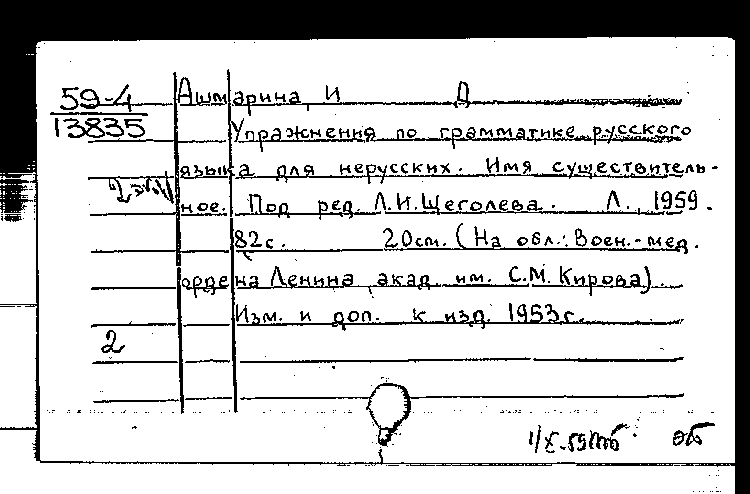 59-4
13835
Ашмарина, И Д
Упражнения по грамматике русского
языка для нерусских. Имя существитель-
2 экз
ное. Под ред. Л.И. Щеголева. Л., 1959.
82с. 20см. (На обл.: Воен.-мед.
ордена Ленина акад. им. С.М. Кирова)
Изм. и доп. к изд. 1953г.
2
1/X-59